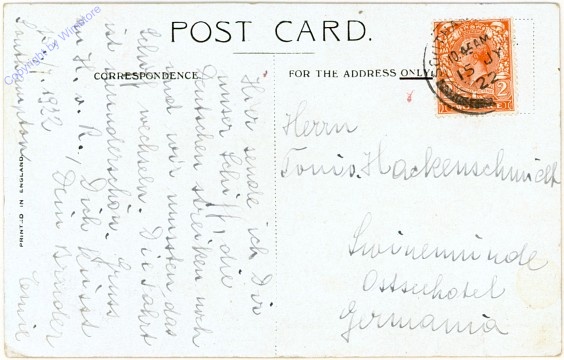 Copyright by Winstore
POST CARD.
CORRESPONDENCE
FOR THE ADDRESS ONLY
SOUTHAMPTON
10.45 AM
15 JY
22
2
Herrn
Hackenschmidt
Swinemünde
Ostseehotel
Germania
15/7. 1922
Southampton
Hier sende ich Dir
unser Schiff, die
Deutschen streiken noch
und wir mussten das
Schiff wechseln. Die Fahrt
ist wunderschön. Gruss
an H. v. R., Dich küsst
Dein Bruder
PRINTED IN ENGLAND